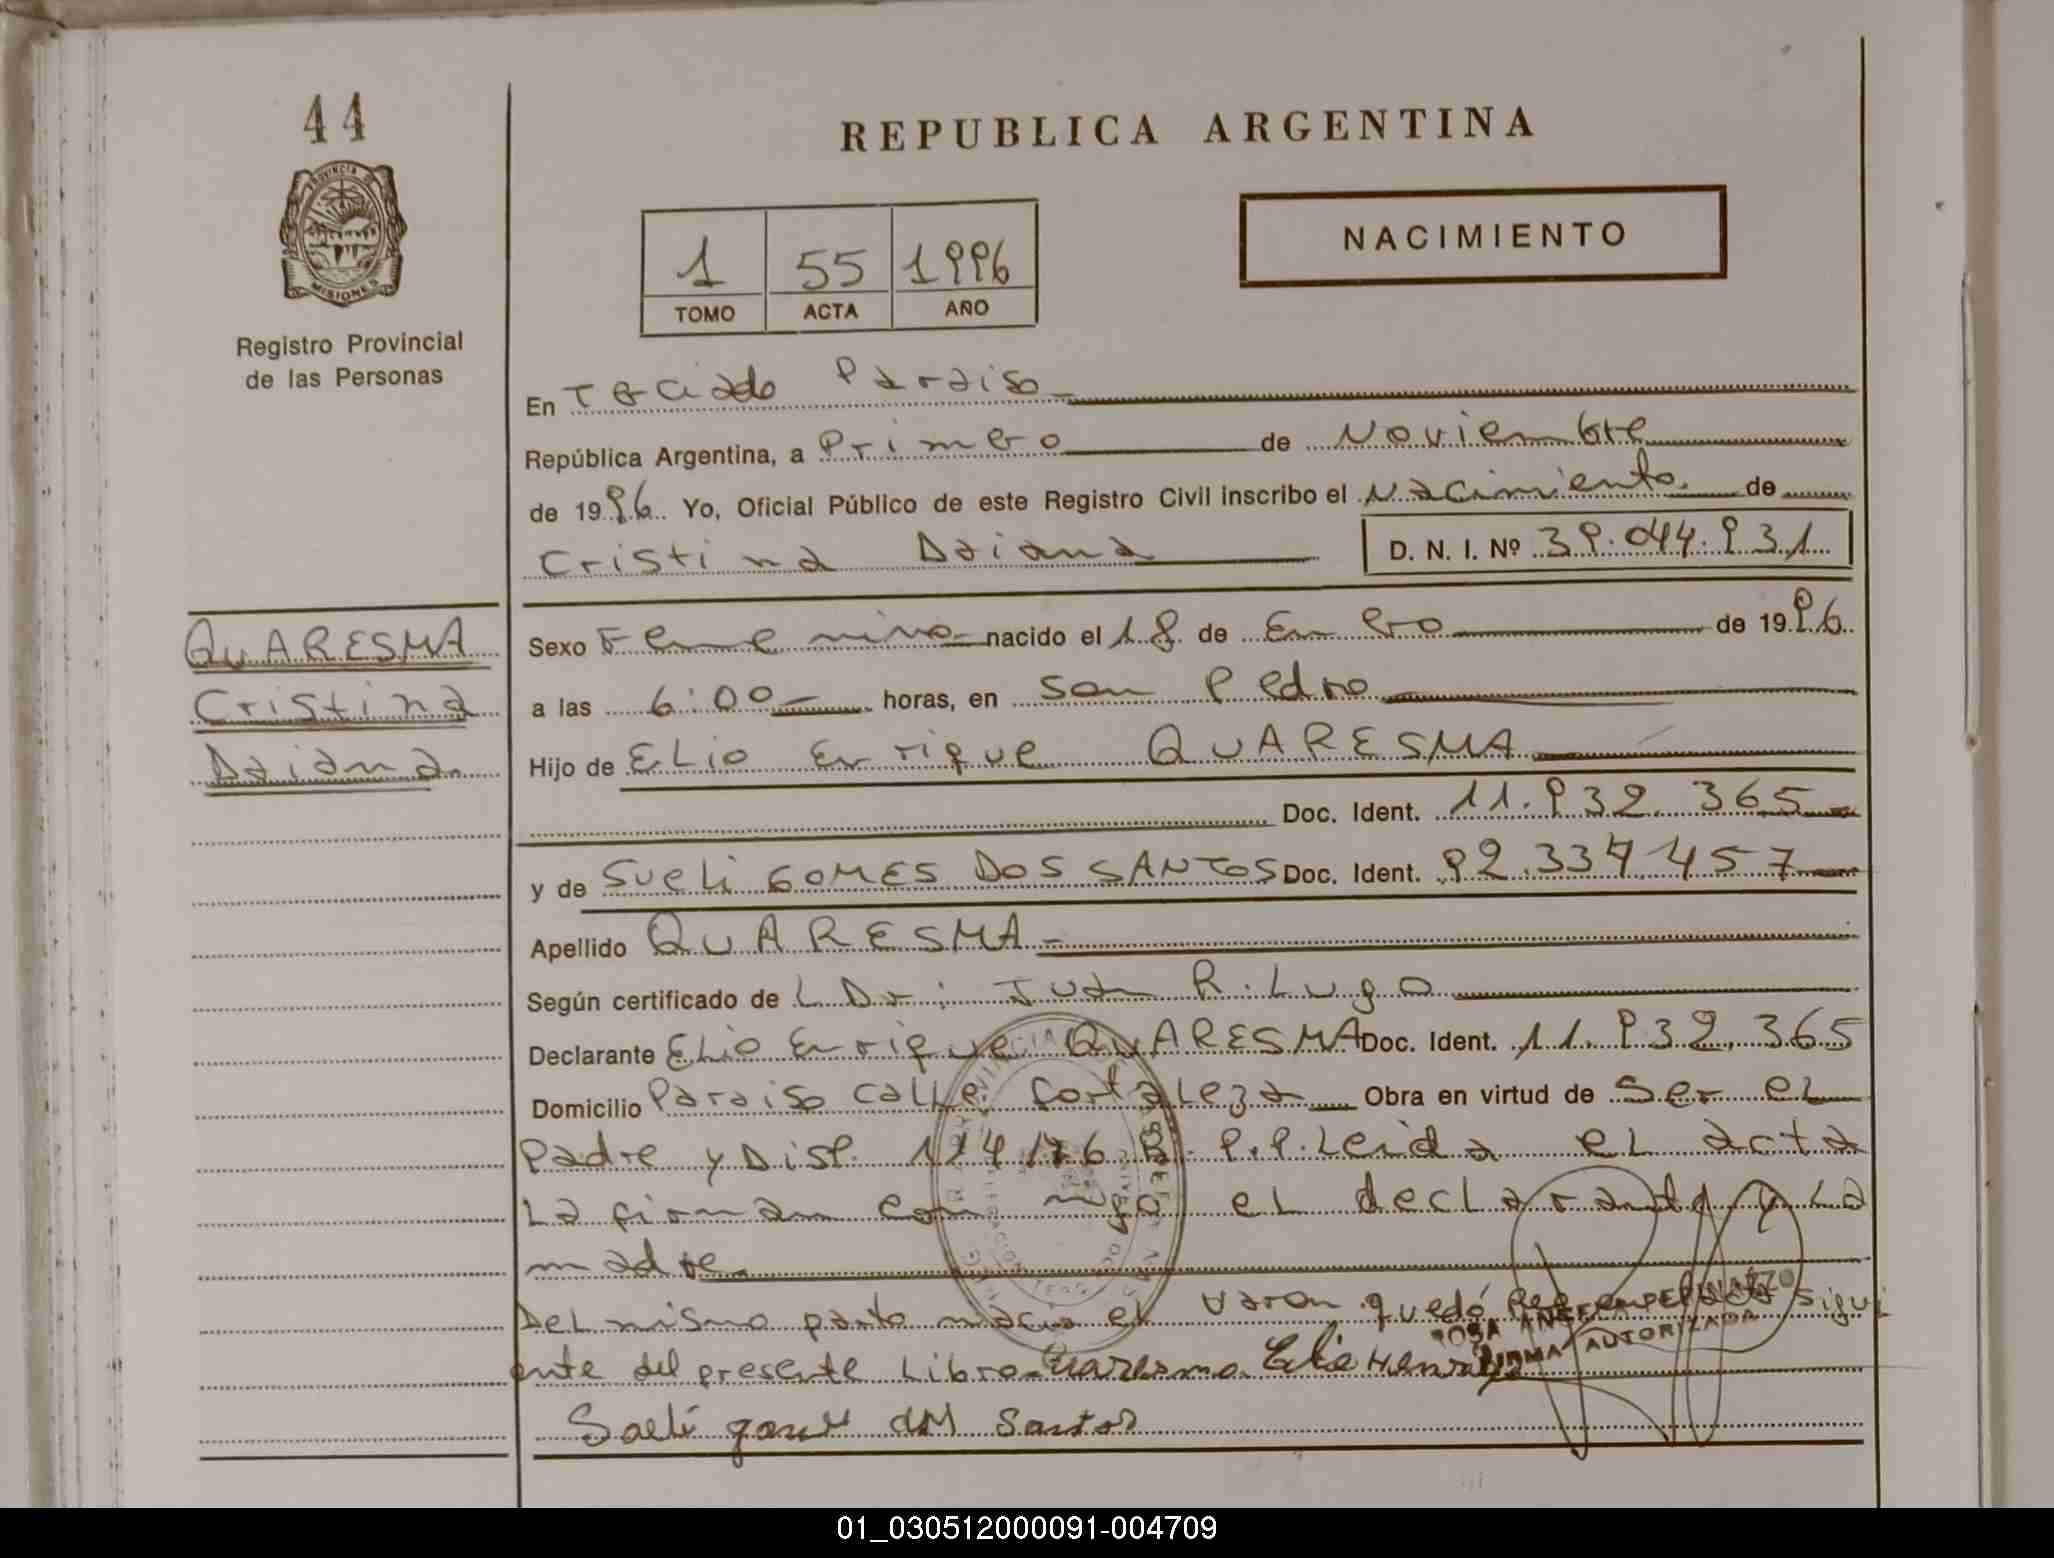 44
REPUBLICA ARGENTINA
PROVINCIA DE
MISIONES
Registro Provincial
de las Personas
1 55 1996
TOMO ACTA AÑO
NACIMIENTO
En Paraiso
República Argentina, a Primero de Noviembre
de 1996 Yo, Oficial Público de este Registro Civil inscribo el Nacimiento de
Cristina Daiana D. N. I. Nº 39.044.931
QUARESMA
Cristina
Daiana
Sexo Femenino nacido el 18 de Enero de 1996
a las 6:00 horas, en San Pedro
Hijo de ELio Enrique QUARESMA
Doc. Ident. 11.932.365
y de SueLi GOMES DOS SANTOS Doc. Ident. 92.337.457
Apellido QUARESMA
Según certificado de L Dr: Juan R. Lugo
Declarante ELio Enrique QUARESMA Doc. Ident. 11.932.365
Domicilio Paraiso calle fortaLeza Obra en virtud de Ser eL
Padre y Disp. 114/76 R.P.P. Leida eL acta
La firman con migo eL decLarante y La
madre.
DeL mismo parto nacio el varon quedó sigui
ente del presente Libro Quaresma Elio Henrique
ROSA ANGELA
FIRMA AUTORIZADA
Sueli gomes dos Santos
01_030512000091-004709